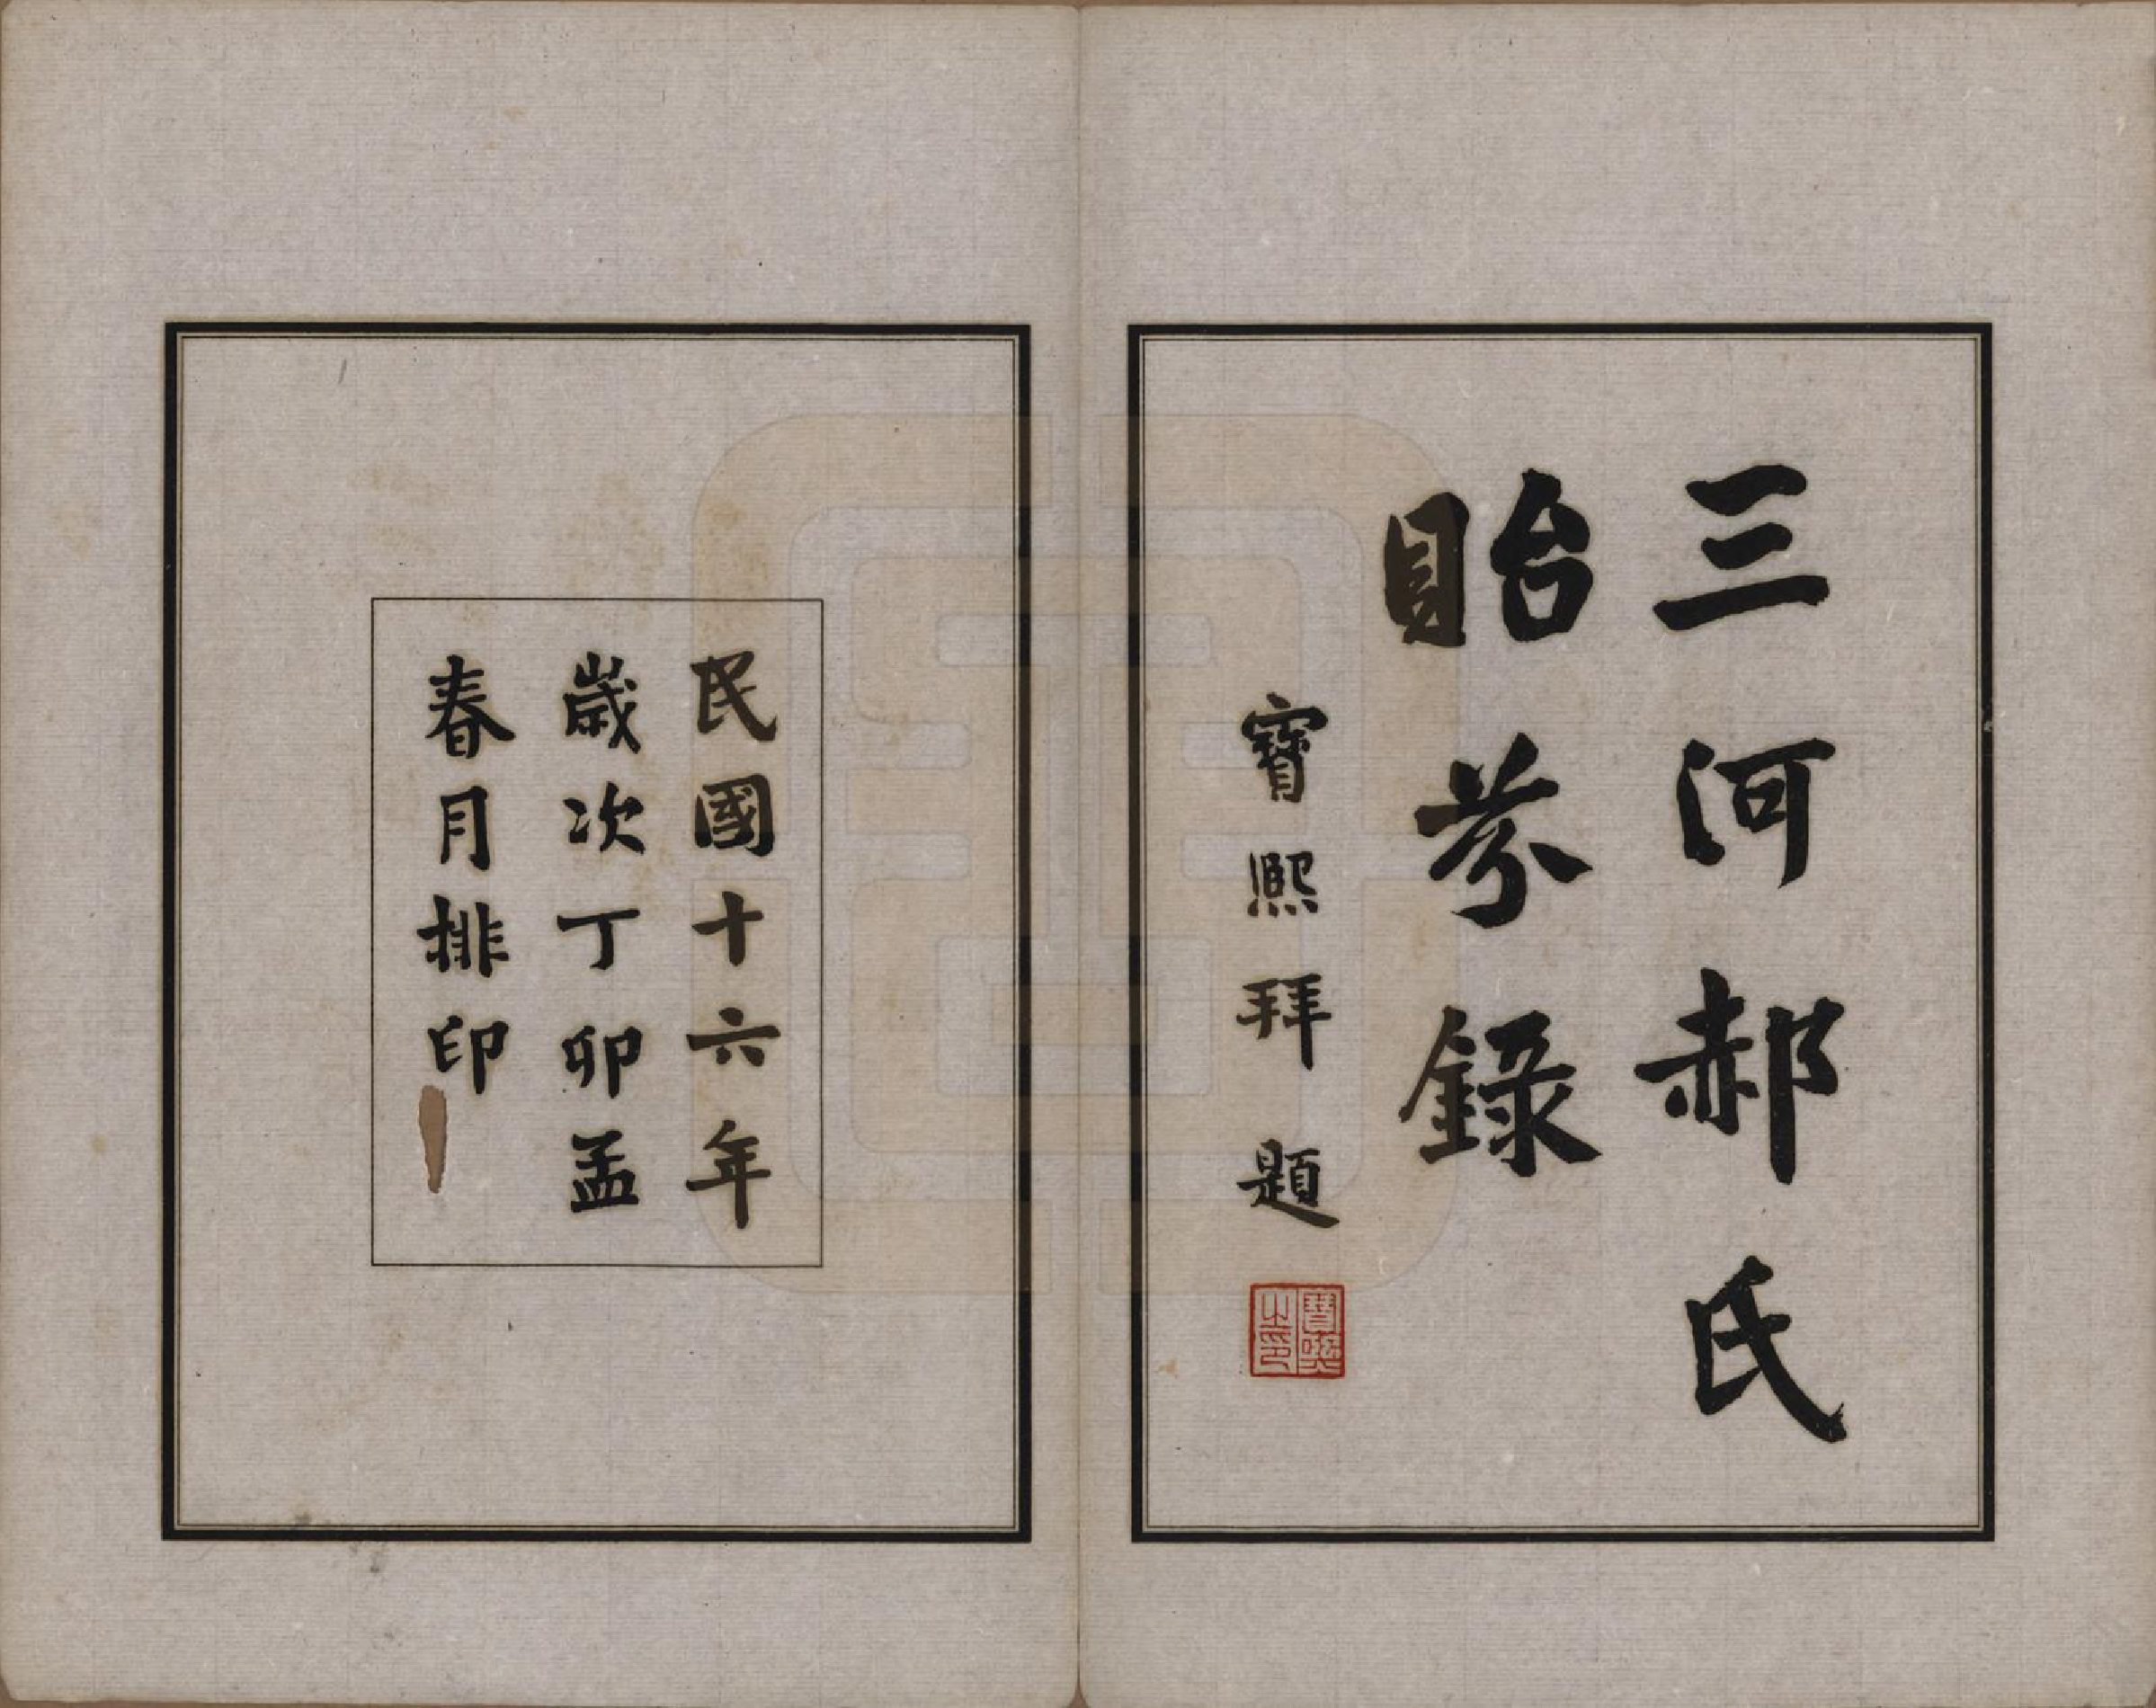 三河郝氏
貽芬錄
寶熙拜題
寶熙之印
民國十六年
歲次丁卯孟
春月排印